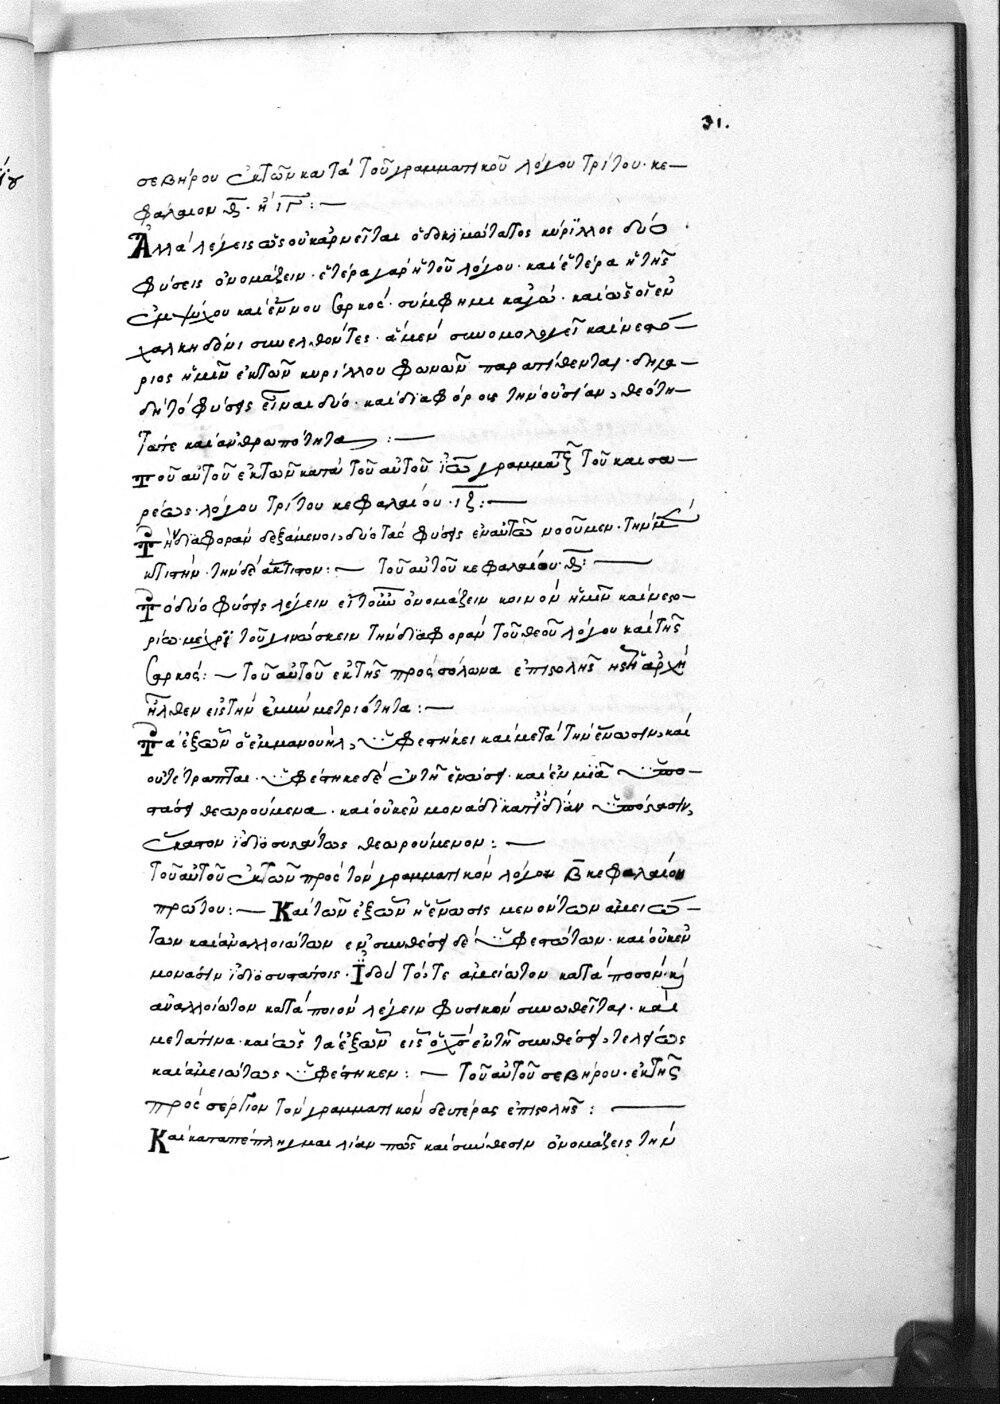 31.
σεβήρου ἐκ τῶν κατὰ τοῦ γραμματικοῦ λόγου τρίτου· κε–
φαλαιον θ· ἢ ιγ :–
Ἀλλὰ λέγεις ὡς οὐκ ἀρνεῖται ὁ κύριλλος δύο
φύσεις ὀνομάζειν· ἑτέρα γὰρ ἡ τοῦ λόγου· καὶ ἑτέρα ἡ τῆς
ἐμψύχου καὶ ἔννου σαρκός· σύμφημι καγώ· καὶ ὡς οἱ ἐν
χαλκηδόνι συνελθόντες· ἃ μὲν συνομολογεῖ καὶ νεστό–
ριος ἡμῖν ἐκ τῶν κυρίλλου φωνῶν παρατίθενται· δηλα–
δὴ τὸ φύσεις εἶναι δύο· καὶ διαφόρους τὴν οὐσίαν, θεότη–
τα τε καὶ ἀνθρωπότητα :–
τοῦ αὐτοῦ ἐκ τῶν κατὰ τοῦ αὐτοῦ ἰω γραμματικ τοῦ καισα–
ρέως· λόγου τρίτου κεφαλαίου· ιξ :–
Τὴν διαφορὰν δεξάμενοι, δύο τὰς φύσεις ἐν αὐτῷ νοοῦμεν· τὴν μὲν
κτιστήν· τὴν δὲ ἄκτιστον :– τοῦ αὐτοῦ κεφαλαίου θ :–
Τὸ δύο φύσεις λέγειν εἴτουν ὀνομάζειν κοινὸν ἡμῖν καὶ νεστο–
ρίῳ μέχρι τοῦ γινώσκειν τὴν διαφορὰν τοῦ θεοῦ λόγου καὶ τῆς
σαρκός :– τοῦ αὐτοῦ ἐκ τῆς πρὸς σόλωνα ἐπιστολῆς ἧς ἡ ἀρχὴ
ἦλθεν εἰς τὴν ἐμὴν μετριότητα :–
Τὰ ἐξ ὧν ὁ ἐμμανουήλ, ὑφεστήκει καὶ μετὰ τὴν ἕνωσιν, καὶ
οὐ τέτραπται· ὑφέστηκε δὲ ἐν τῇ ἑνώσει· καὶ ἐν μιᾷ ὑπο–
στάσει θεωρούμενα· καὶ οὐκ ἐν μονάδι κατ ἰδίαν ὑπόστασιν,
ἕκαστον ἰδιοσυστάτως θεωρούμενον :–
τοῦ αὐτοῦ ἐκ τῶν πρὸς τὸν γραμματικὸν λόγον β κεφαλαίου
πρώτου :– Καὶ τῶν ἐξ ὧν ἡ ἕνωσις μενόντων ἀμειώ–
των καὶ ἀναλλοιώτων ἐν συνθέσει δὲ ὑφεστώτων· καὶ οὐκ ἐν
μονάσιν ἰδιοσυστάτοις· Ἰδοὺ τό, τε ἀμείωτον κατὰ ποσὸν καὶ
ἀναλλοίωτον κατὰ ποιὸν λέγειν φυσικὸν συνωθεῖται· καὶ
μετὰ τινα· καὶ ὡς τὰ ἐξ ὧν εἷς ὁ χσ ἐν τῇ συνθέσει, τελείως
καὶ ἀμειώτως ὑφέστηκεν :– τοῦ αὐτοῦ σεβήρου· ἐκ τῆς
πρὸς σέργιον τὸν γραμματικὸν δευτέρας ἐπιστολῆς :–
Καὶ καταπέπληγμαι λίαν πῶς καὶ σύνθεσιν ὀνομάζεις τὴν